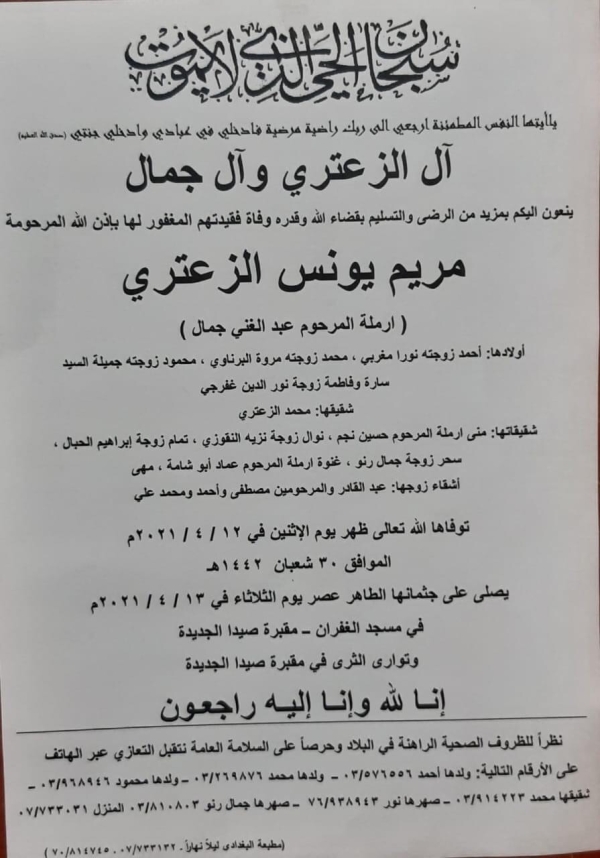 سبحان الحي الذي لا يموت
ياأيتها النفس المطمئنة ارجعي الى ربك راضية مرضية فادخلي في عبادي وادخلي جنتي (صدق الله العظيم)
آل الزعتري وآل جمال
ينعون اليكم بمزيد من الرضى والتسليم بقضاء الله وقدره وفاة فقيدتهم المغفور لها بإذن الله المرحومة
مريم يونس الزعتري
( ارملة المرحوم عبد الغني جمال )
أولادها: أحمد زوجته نورا مغربي ، محمد زوجته مروة البرناوي ، محمود زوجته جميلة السيد
سارة وفاطمة زوجة نور الدين غفرجي
شقيقها: محمد الزعتري
شقيقاتها: منى ارملة المرحوم حسين نجم ، نوال زوجة نزيه النقوزي ، تمام زوجة إبراهيم الحبال ،
سحر زوجة جمال رنو ، غنوة ارملة المرحوم عماد أبو شامة ، مهى
أشقاء زوجها: عبد القادر والمرحومين مصطفى وأحمد ومحمد علي
توفاها الله تعالى ظهر يوم الإثنين في ١٢ / ٤ / ٢٠٢١م
الموافق ٣٠ شعبان ١٤٤٢هـ
يصلى على جثمانها الطاهر عصر يوم الثلاثاء في ١٣ / ٤ / ٢٠٢١م
في مسجد الغفران – مقبرة صيدا الجديدة
وتوارى الثرى في مقبرة صيدا الجديدة
إنا لله وإنا إليه راجعون
نظراً للظروف الصحية الراهنة في البلاد وحرصاً على السلامة العامة نتقبل التعازي عبر الهاتف
على الأرقام التالية: ولدها أحمد ٠٣/٥٧٦٥٥٦ – ولدها محمد ٠٣/٢٦٩٨٧٦ – ولدها محمود ٠٣/٩٦٨٩٤٦ –
شقيقها محمد ٠٣/٩١٤٢٢٣ – صهرها نور ٧٦/٩٣٨٩٤٣ – صهرها جمال رنو ٠٣/٨١٠٨٠٣ المنزل ٠٧/٧٣٣٠٣١
(مطبعة البغدادي ليلاً نهاراً. ٠٧/٧٣٣١٣٢ . ٧٠/٨١٤٧٤٥ )